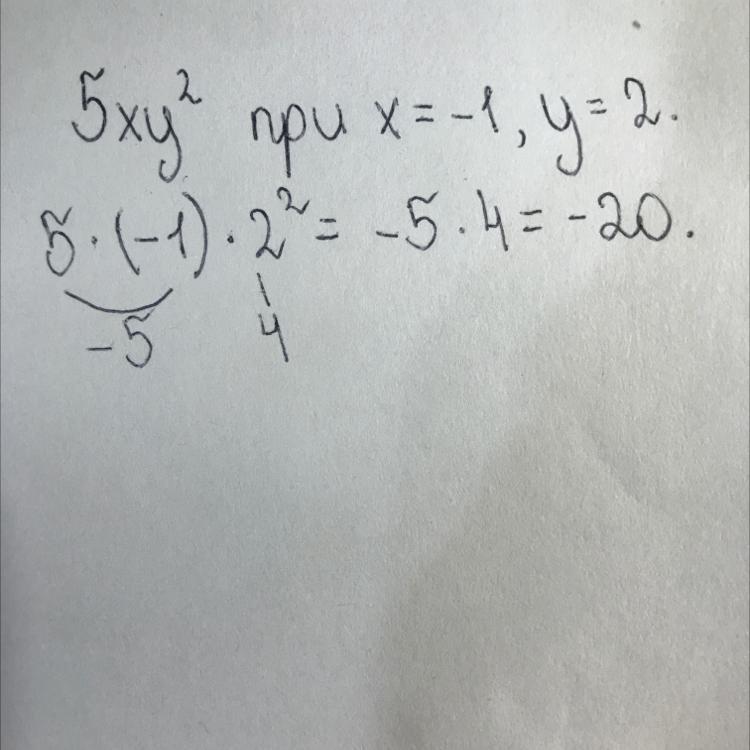 5xy² при x = -1, y = 2.
5 · (-1) · 2² = -5 · 4 = -20.
-5 4